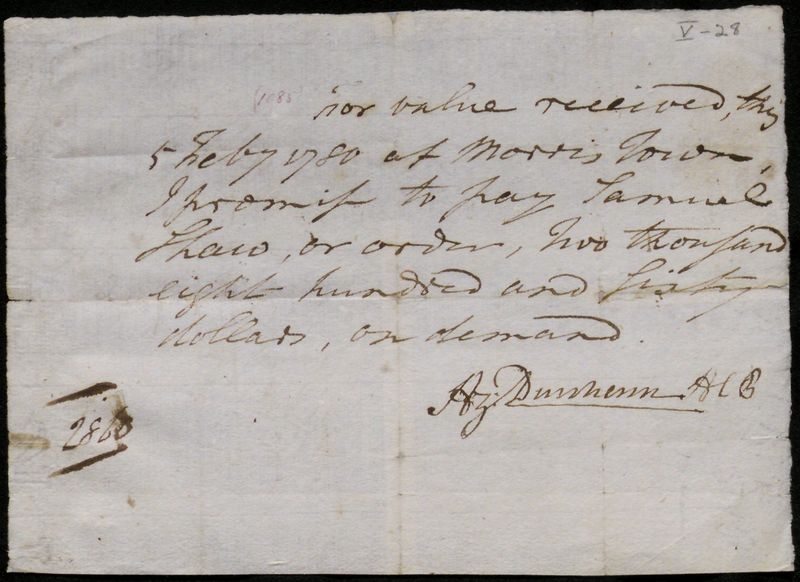 V-28
1085
For value received, this
5 Feby 1780 at Morris Town,
I promiss to pay Samuel
Shaw, or order, Two thousand
eight hundred and Sixty
dollars, on demand.
ACB
2860